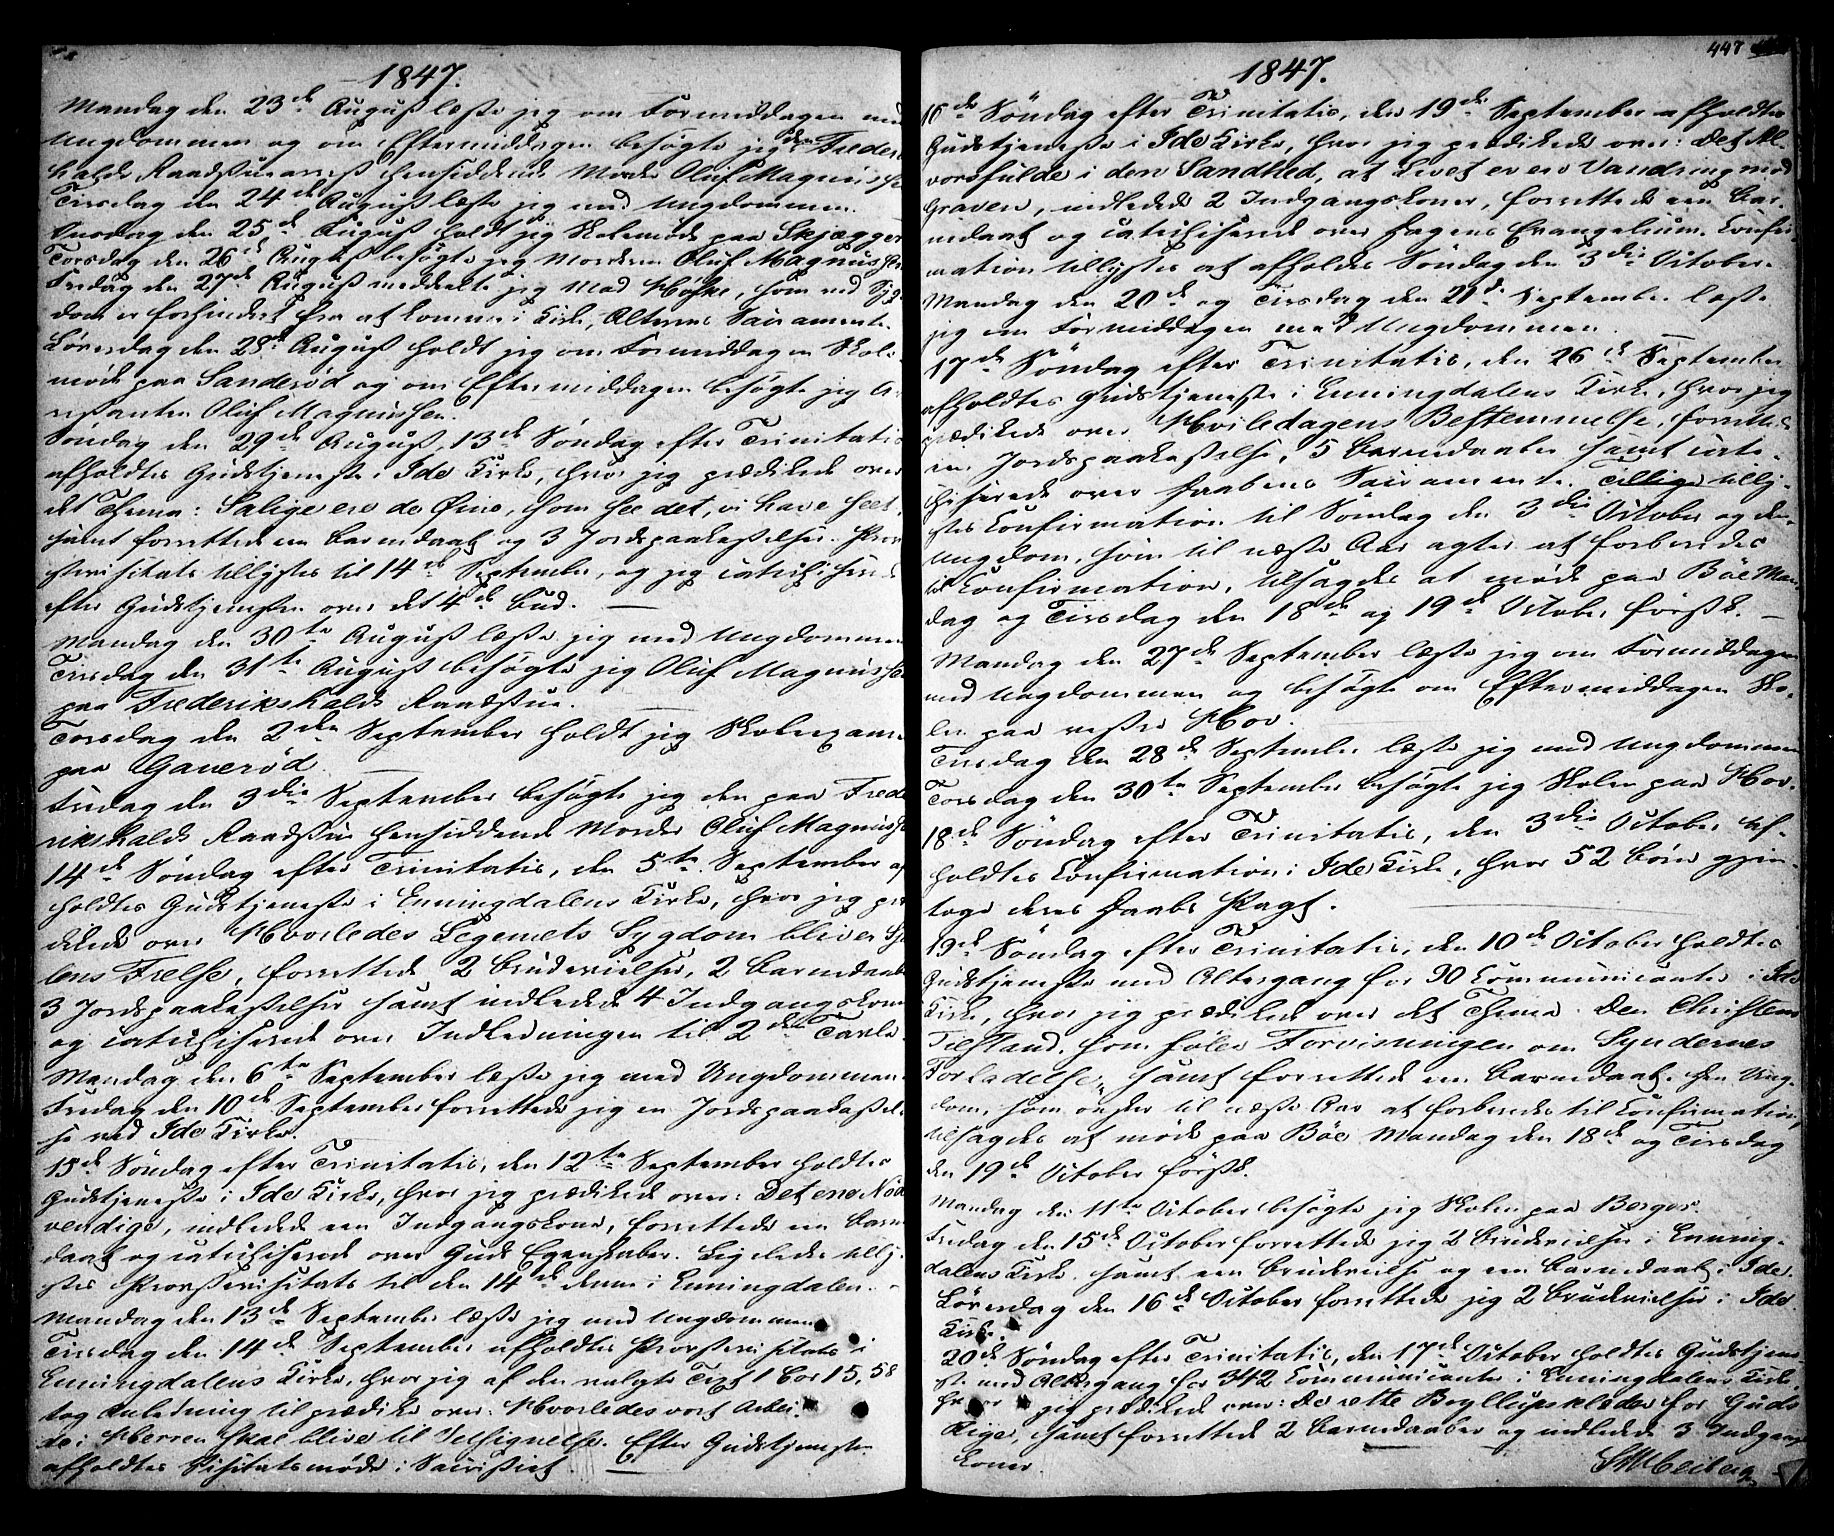 1847.
Mandag den 23de August læste jeg om Formiddagen med
Ungdommen og om Eftermiddagen besøgte jeg den i Frederiks
halds Raadstuearrest hensiddende Morder Oluf Magnussen
Tirsdag den 24de August læste jeg med Ungdommen.
Onsdag den 25de August holdt jeg Skolemøde paa Skjægger
Torsdag den 26de August besøgte jeg Morderen Oluf Magnussen
Fredag den 27de August meddeelte jeg Mad Høfke, som ved Syg-
dom er forhindret fra at komme i Kirke, Alterens Sacramente.
Løverdag den 28de August holdt jeg om Formiddagen Skole-
møde paa Sanderød og om Eftermiddagen besøgte jeg A-
restanten Oluf Magnussen.
Søndag den 29de August, 13de Søndag efter Trinitatis
afholdtes Gudstjeneste i Ide Kirke, hvor jeg prædikede over
det Thema: Salige ere de Øine, som see det, vi have seet,
samt forrettede een Barnedaab og 3 Jordspaakastelser. Prov-
stevisitats tillystes til 14de September, og jeg catechiserede
efter Gudstjenesten over det 4de Bud.
Mandag den 30te August læste jeg med Ungdommen
Tirsdag den 31te August besøgte jeg Oluf Magnussen
paa Frederikshalds Raadstue.
Torsdag den 2den September holdt jeg Skoleexamen
paa Ganerød.
Fredag den 3die September besøgte jeg den paa Frede
rikshalds Raadstue hensiddende Morder Oluf Magnussen
14de Søndag efter Trinitatis, den 5te September af
holdtes Gudstjeneste i Enningdalens Kirke, hvor jeg præ
dikede over Hvorledes Legemets Sygdom bliver Sje
lens Frelse, forrettede 2 Brudevielser, 2 Barnedaabe
3 Jordspaakastelser samt indledede 4 Indgangskoner
og catechiserede over Indledningen til 2den Tavle.
Mandag den 6te September læste jeg med Ungdommen.
Fredag den 10de September forrettede jeg en Jordspaakastel-
se ved Ide Kirke.
15de Søndag efter Trinitatis, den 12te September holdtes
Gudstjeneste i Ide Kirke, hvor jeg prædikede over: Det ene Nød
vendige, indledede een Indgangskone, forrettede een Barne
daab og catechiserede over Guds Egenskaber. Ligeledes tilly-
stes Provstevisitats til den 14de dennes i Enningdalen.
Mandag den 13de September læste jeg med Ungdommen
Tirsdag den 14de September afholdtes Provstevisitats i
Enningdalens Kirke, hvor jeg af den valgte Text 1 Cor 15, 58
tog Anledning til prædike over: Hvorledes vort Arbei-
de i Herren skal blive til Velsignelse. Efter Gudstjenesten
afholdtes Visitatsmøde i Sacristiet
447
1847.
16de Søndag efter Trinitatis, den 19de September afholdtes
Gudstjeneste i Ide Kirke, hvor jeg prædikede over: Det Al-
vorsfulde i den Sandhed, at Livet er en Vandring mod
Graven, indledede 2 Indgangskoner, forrettede een Bar-
nedaab og catechiserede over Dagens Evangelium. Confir-
mation tillystes at afholdes Søndag den 3die October.
Mandag den 20de og Tirsdag den 21de September læste
jeg om Formiddagen med Ungdommen.
17de Søndag efter Trinitatis, den 26de September
afholdtes Gudstjeneste i Enningdalens Kirke, hvor jeg
prædikede over Hviledagens Bestemmelse, forrettede
en Jordspaakastelse, 5 Barnedaaber samt cate-
chiserede over Daabens Sacramente. Tillige tilly-
stes Confirmation til Søndag den 3die October og den
Ungdom, som til næste Aar agter at forberedes
til Confirmation, tilsagdes at møde paa Böe Man-
dag og Tirsdag den 18de og 19de October førstk.
Mandag den 27de September læste jeg om Formiddagen
med Ungdommen og besøgte om Eftermiddagen Sko-
len paa vestre Hov.
Tirsdag den 28de September læste jeg med Ungdommen
Torsdag den 30te September besøgte jeg Skolen paa Hov.
18de Søndag efter Trinitatis, den 3die October af-
holdtes Confirmation i Ide Kirke, hvor 52 Børn gjen-
toge deres Daabs Pagt.
19de Søndag efter Trinitatis, den 10de October holdtes
Gudstjeneste med Altergang for 90 Communicanter i Ide
Kirke, hvor jeg prædikede over det Thema: Den Christens
Tilstand, som føler Forvisningen om Syndernes
Forladelse, samt forrettede een Barnedaab. Den Ung-
dom, som ønsker til næste Aar at forberedes til Confirmation,
tilsagdes at møde paa Böe Mandag den 18de og Tirsdag
den 19de October førstk.
Mandag den 11te October besøgte jeg Skolen paa Berger.
Fredag den 15de October forrettede jeg 2 Brudevielser i Enning-
dalens Kirke, samt een Brudevielse og een Barnedaab i Ide.
Løverdag den 16de October forrettede jeg 2 Brudevielser i Ide
Kirke.
20de Søndag efter Trinitatis, den 17de October holdtes Gudstjene-
ste med Altergang for 342 Communicanter i Enningdalens Kirke,
hvor jeg prædikede over: De rette Bryllupsklæder for Guds
Rige, samt forrettede 2 Barnedaaber og indledede 3 Indgangs
koner.